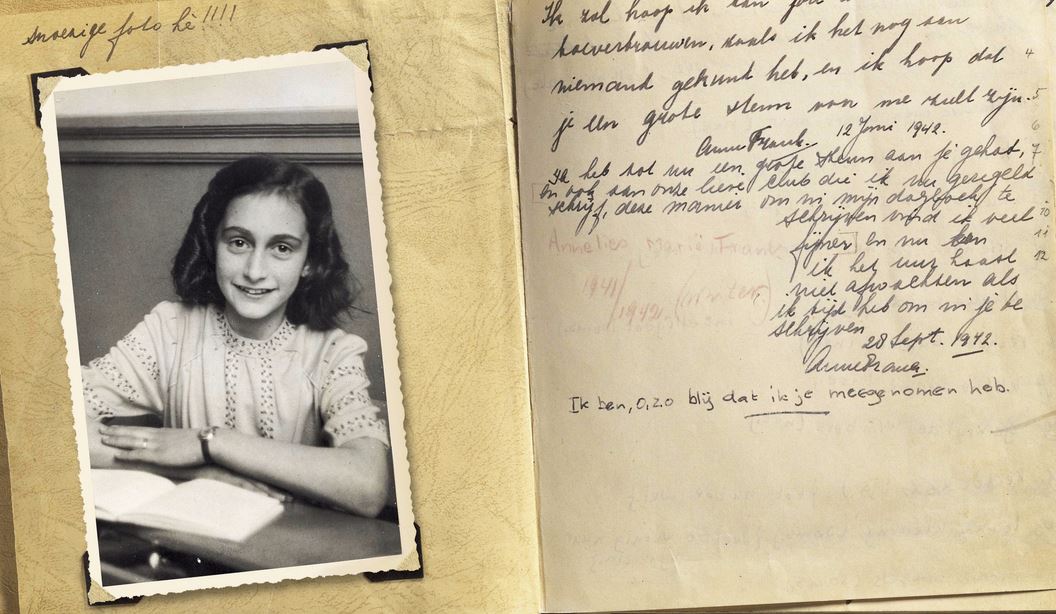 Snoezige foto hè!!!!
Ik zal hoop ik aan jou
toevertrouwen, zoals ik het nog aan
niemand gekund heb, en ik hoop dat
4
je een grote steun voor me zult zijn.
5
Anne Frank. 12 Juni 1942.
6
Ik heb tot nu een grote steun aan je gehad,
7
en ook aan onze lieve club die ik nu geregeld
schrijf, deze manier om in mijn dagboek te
schrijven vind ik veel
10
fijner en nu kan
11
ik het uur haast
12
niet afwachten als
ik tijd heb om in je te
schrijven
28 Sept. 1942.
Anne Frank.
Annelies Marie Frank
1941/
1942
Ik ben, o, zo blij dat ik je meegenomen heb.